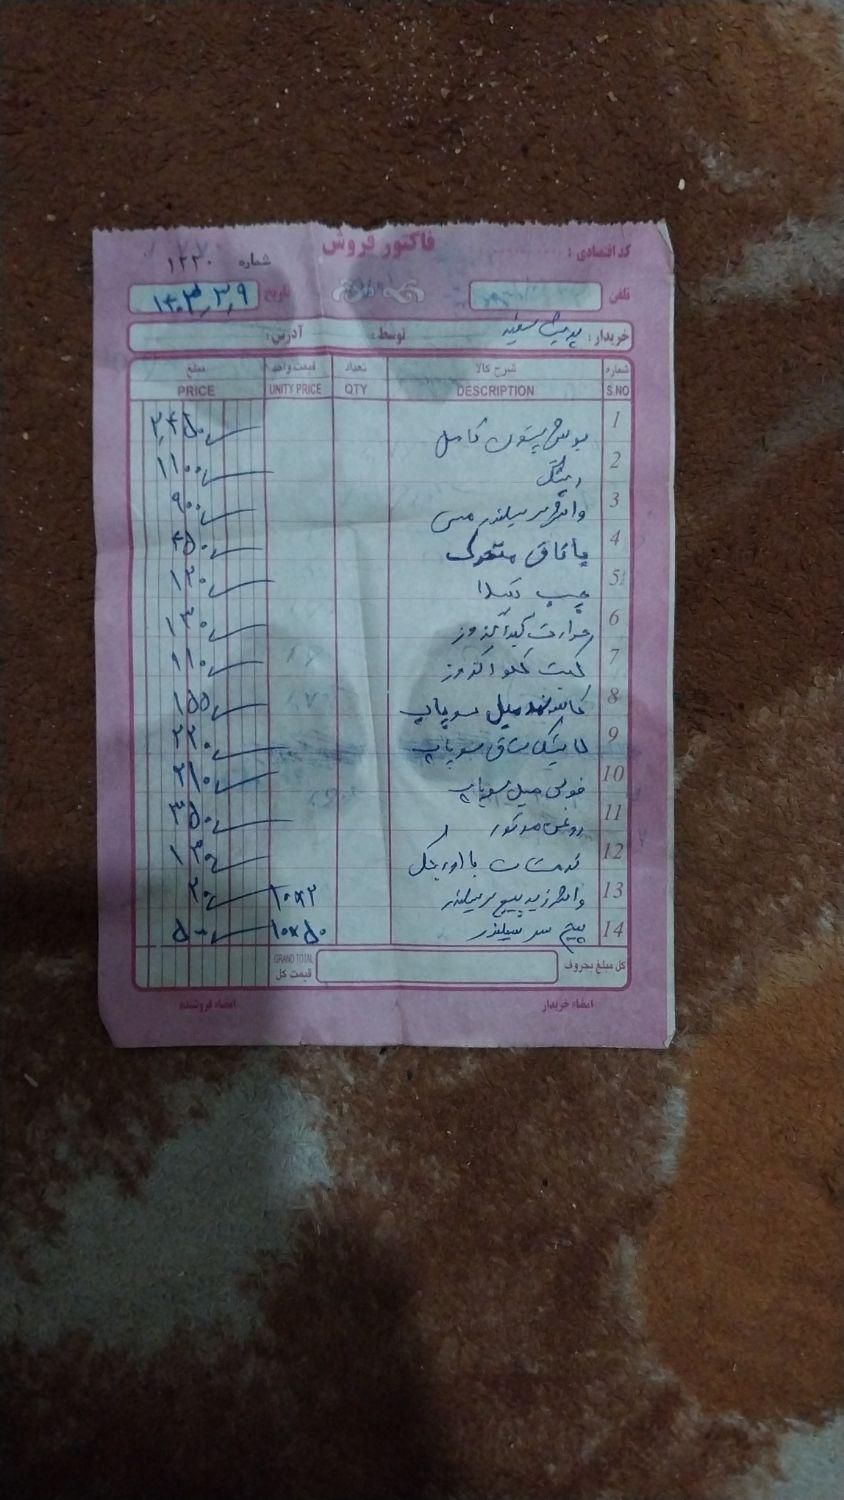 فاکتور فروش
کد اقتصادی :
شماره ۱۲۲۰
تلفن
تاریخ ۱۴۰۳,۳,۹
خریدار : سفید
توسط :
آدرس :
شماره شرح کالا تعداد قیمت واحد مبلغ
S.NO DESCRIPTION QTY UNITY PRICE PRICE
1 بوش پیستون کامل ۲,۴۵۰
2 رینگ ۱۱۰۰
3 واشر سر سیلندر مسی ۹۰۰
4 یاتاقان متحرک ۴۵۰
5 چسب ۱۲۰
6 حرارت گیر اگزوز ۱۳۰
7 کیت گلو اگزوز ۱۱۰
8 میل سوپاپ ۱۵۵
9 لاستیک ساق سوپاپ ۲۲۰
10 فولی میل سوپاپ ۲۱۰
11 روغن موتور ۳۵۰
12 ۱۳۰
13 واشر زیر پیچ سر سیلندر ۱۰×۲ ۲۰
14 پیچ سر سیلندر ۱۰×۵۰ ۵۰۰
کل مبلغ بحروف
GRAND TOTAL
قیمت کل
امضاء خریدار
امضاء فروشنده